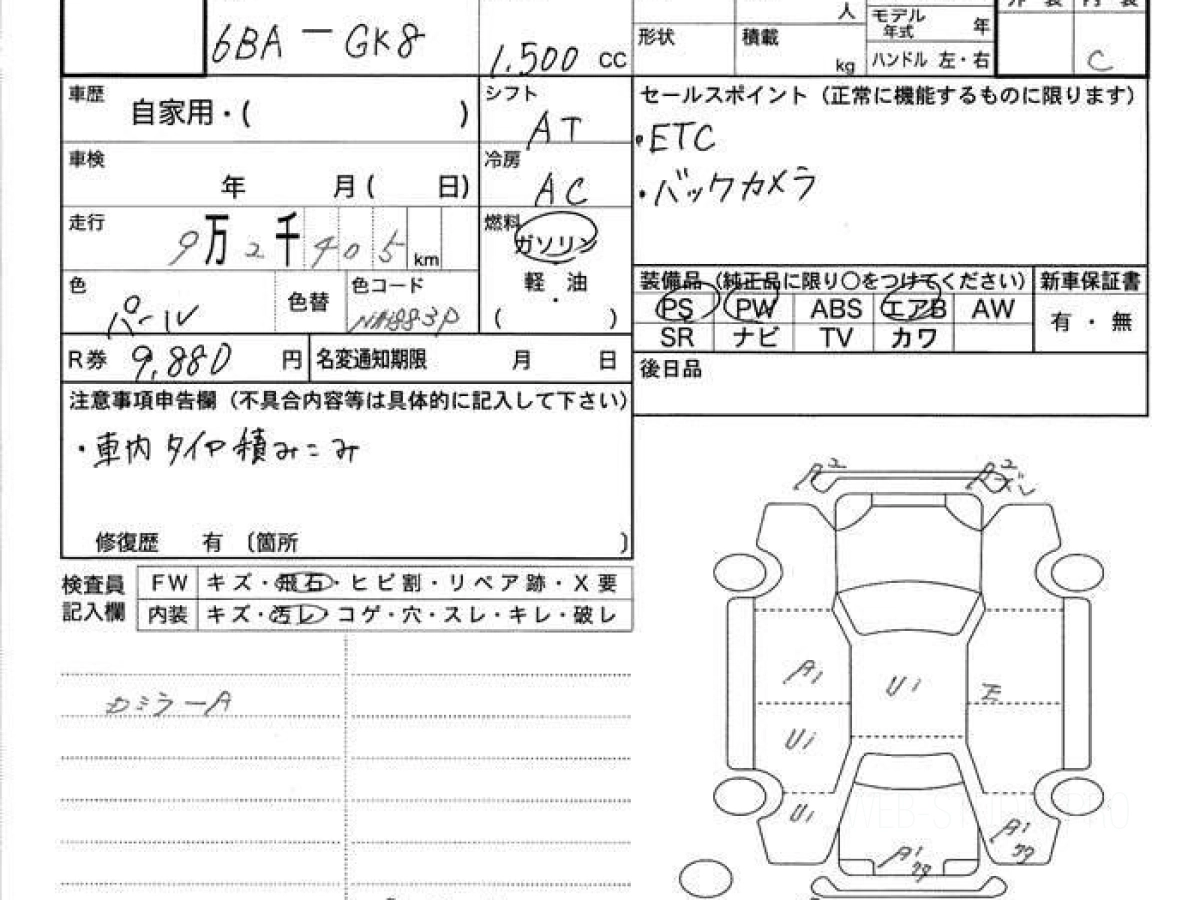 6BA-GK8
1.500 cc
形状
積載
人
kg
モデル年式 年
ハンドル 左・右
C
車歴
自家用・( )
シフト
AT
車検
年 月 ( 日)
冷房
AC
走行
9万2千405km
燃料
ガソリン
軽油
・
( )
色
パール
色替
色コード
NH883P
R券 9,880 円
名変通知期限 月 日
セールスポイント(正常に機能するものに限ります)
・ETC
・バックカメラ
装備品(純正品に限り○をつけてください)
新車保証書
PS PW ABS エアB AW
SR ナビ TV カワ
有・無
後日品
注意事項申告欄(不具合内容等は具体的に記入して下さい)
・車内タイヤ積みこみ
修復歴 有 〔箇所 〕
検査員記入欄
FW キズ・飛石・ヒビ割・リペア跡・X要
内装 キズ・汚レ・コゲ・穴・スレ・キレ・破レ
カミラーA
A2
A2
ズレ
A1
U1
E
U1
U1
A1
ワタ
A1
ワタ